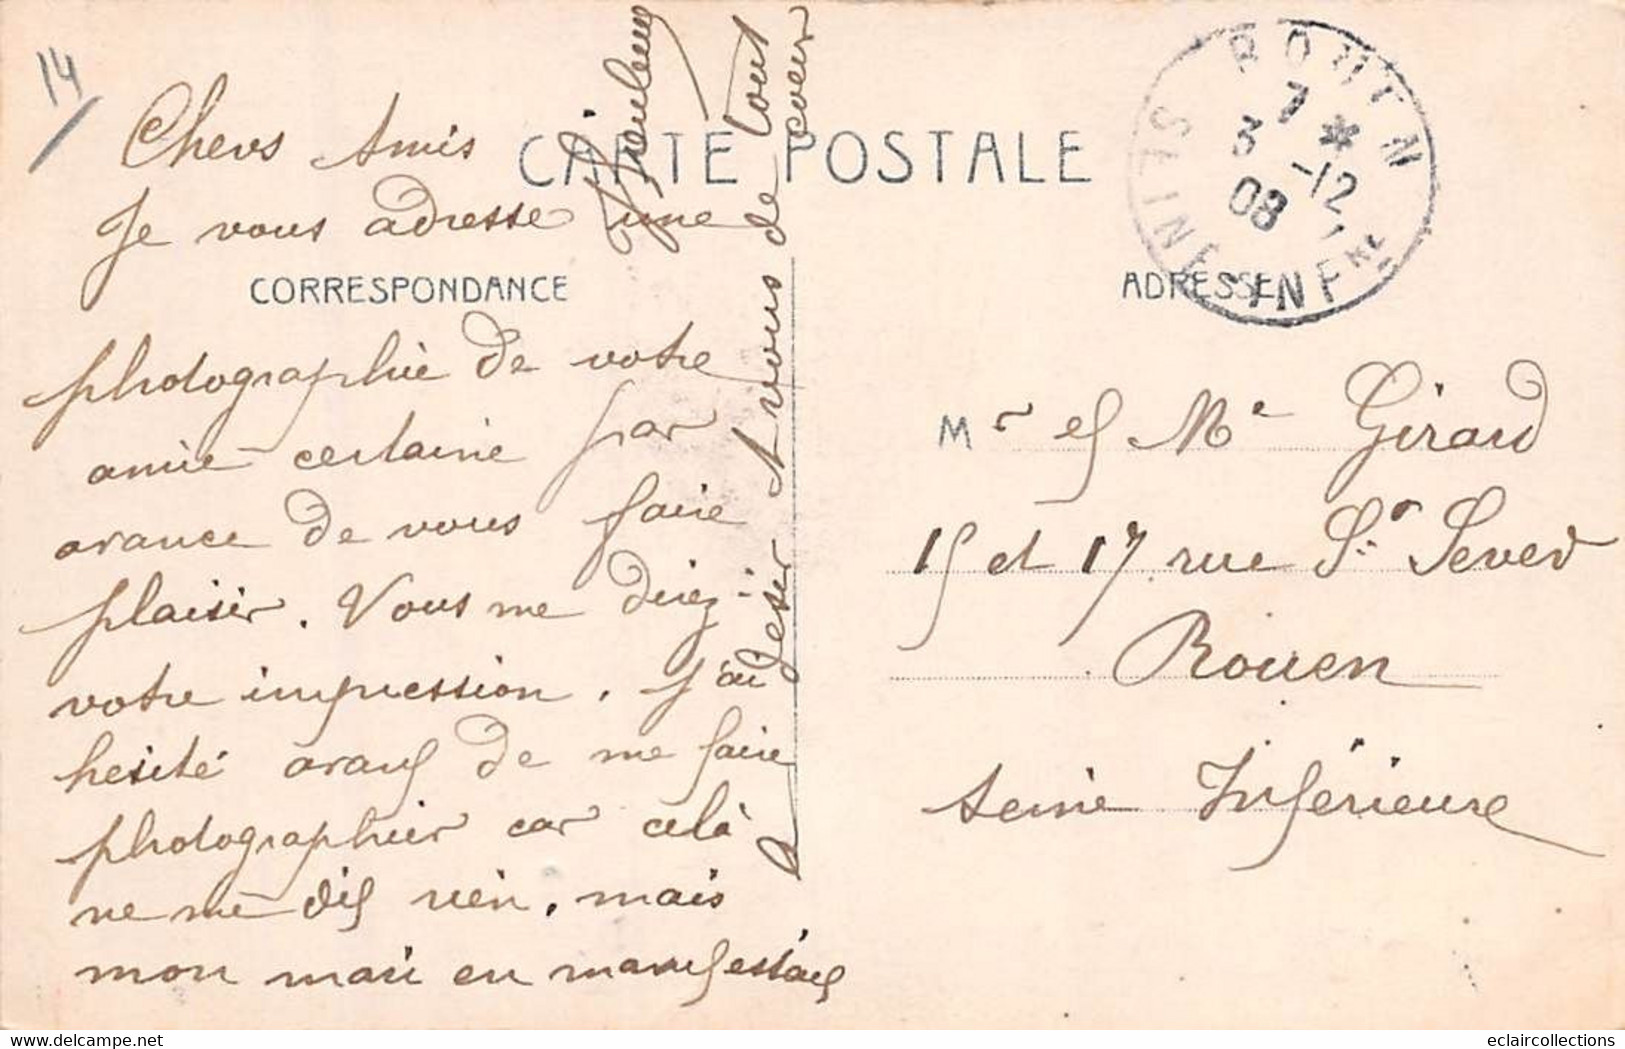 14
Chers Amis
CARTE POSTALE
Je vous adresse une
CORRESPONDANCE
photographie de votre
amie certaine par
avance de vous faire
plaisir. Vous me direz
votre impression. J'ai
hesité avant de me faire
photographier car celà
ne me dit rien, mais
mon mari en manifestant
le desir A vous de tout
coeur
ROUEN
7 *
3 -12
08
SEINE INFRE
ADRESSE
Mr et Me Girard
15 et 17 rue St Sever
Rouen
Seine Inférieure
eclaircollections